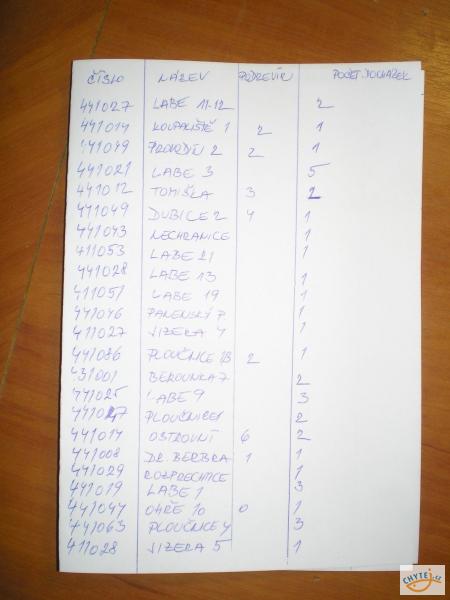 ČÍSLO NÁZEV PODREVÍR POČET DOCHÁZEK
441027 LABE 11-12 2
441014 KOUPALIŠTĚ 1 2 1
441049 PROVODÍN 2 2 1
441021 LABE 3 5
441012 TOMIŠLA 3 2
411049 DUBICE 2 4 1
441043 NECHRANICE 1
411053 LABE 21 1
441028 LABE 13 1
411051 LABE 19 1
441046 PANENSKÝ P. 1
411027 JIZERA 4 1
441086 PLOUČNICE 1B 2 1
431001 BEROUNKA 7 2
441025 LABE 9 3
441047 PLOUČNICE 1 2
441014 OSTROVNÍ 6 2
441008 DR. BERBRA 1 1
441029 ROZPRECHTICE 1
441019 LABE 1 3
441047 OHŘE 10 0 1
441063 PLOUČNICE 4 3
411028 JIZERA 5 1
CHYTEJ.cz